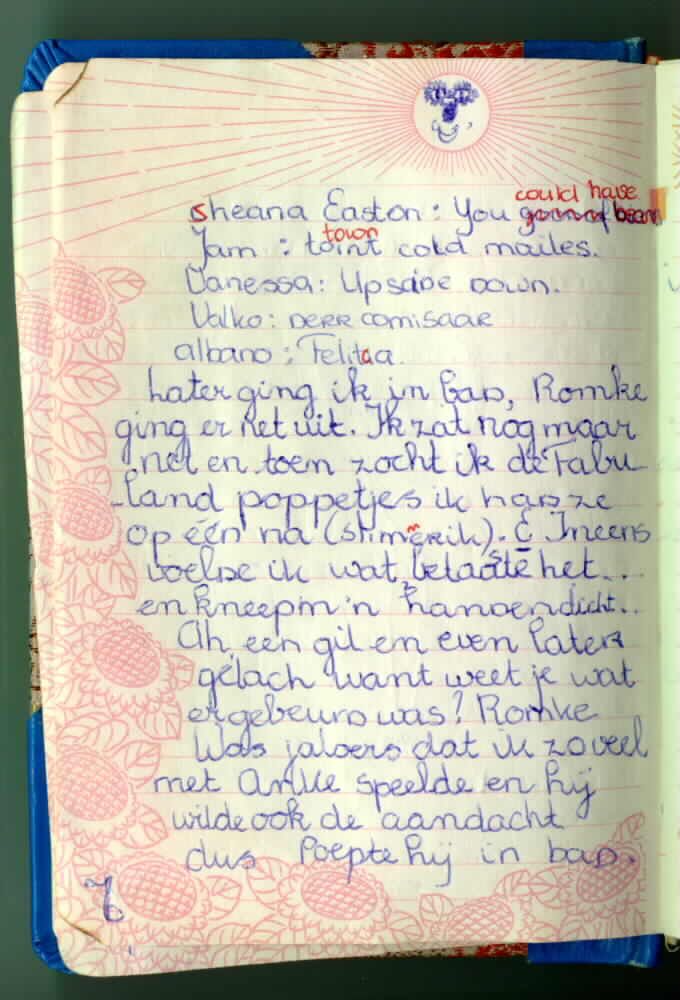 could have
sheana Easton: You gonna been
town
Jam : toint cold mailes.
Vanessa: Upside Down.
Valko: DERR comisaar
albano: Felitaa.
Later ging ik in bad, Romke
ging er net uit. Ik zat nog maar
net en toen zocht ik de Fabu-
-land poppetjes ik had ze
op één na (slimerik). & Ineens
voelde ik wat, betastte het...
en kneep in 'n handendicht..
Ah, een gil en even later
gelach want weet je wat
er gebeurd was? Romke
Was jaloers dat ik zoveel
met Anke speelde en hij
wilde ook de aandacht
dus Poepte hij in bad.